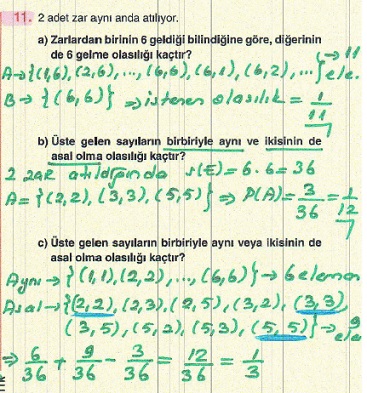 11. 2 adet zar aynı anda atılıyor.
a) Zarlardan birinin 6 geldiği bilindiğine göre, diğerinin
de 6 gelme olasılığı kaçtır?
A→{(1,6), (2,6), ..., (6,6), (6,1), (6,2), ...} → 11 ele.
B → {(6,6)} ⇒ istenen olasılık = 1/11
b) Üste gelen sayıların birbiriyle aynı ve ikisinin de
asal olma olasılığı kaçtır?
2 zar atıldığında s(E) = 6.6 = 36
A = {(2,2), (3,3), (5,5)} ⇒ P(A) = 3/36 = 1/12
c) Üste gelen sayıların birbiriyle aynı veya ikisinin de
asal olma olasılığı kaçtır?
Aynı → {(1,1), (2,2), ..., (6,6)} → 6 eleman
Asal → {(2,2), (2,3), (2,5), (3,2), (3,3)
(3,5), (5,2), (5,3), (5,5)} → 9 ele
⇒ 6/36 + 9/36 - 3/36 = 12/36 = 1/3